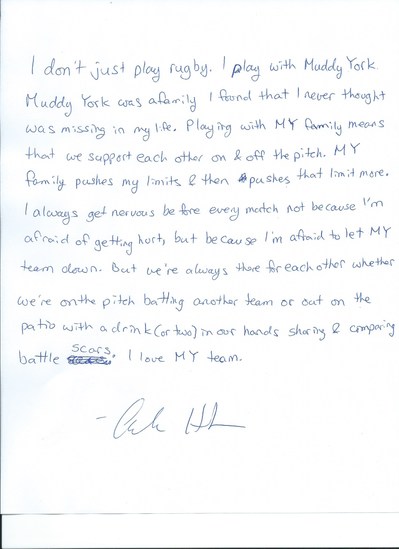 I don't just play rugby. I play with Muddy York
Muddy York was a family I found that I never thought
was missing in my life. Playing with MY family means
that we support each other on & off the pitch. MY
family pushes my limits & then pushes that limit more.
I always get nervous before every match not because I'm
afraid of getting hurt, but because I'm afraid to let MY
team down. But we're always there for each other whether
we're on the pitch batting another team or out on the
patio with a drink (or two) in our hands sharing & comparing
battle scars. I love MY team.